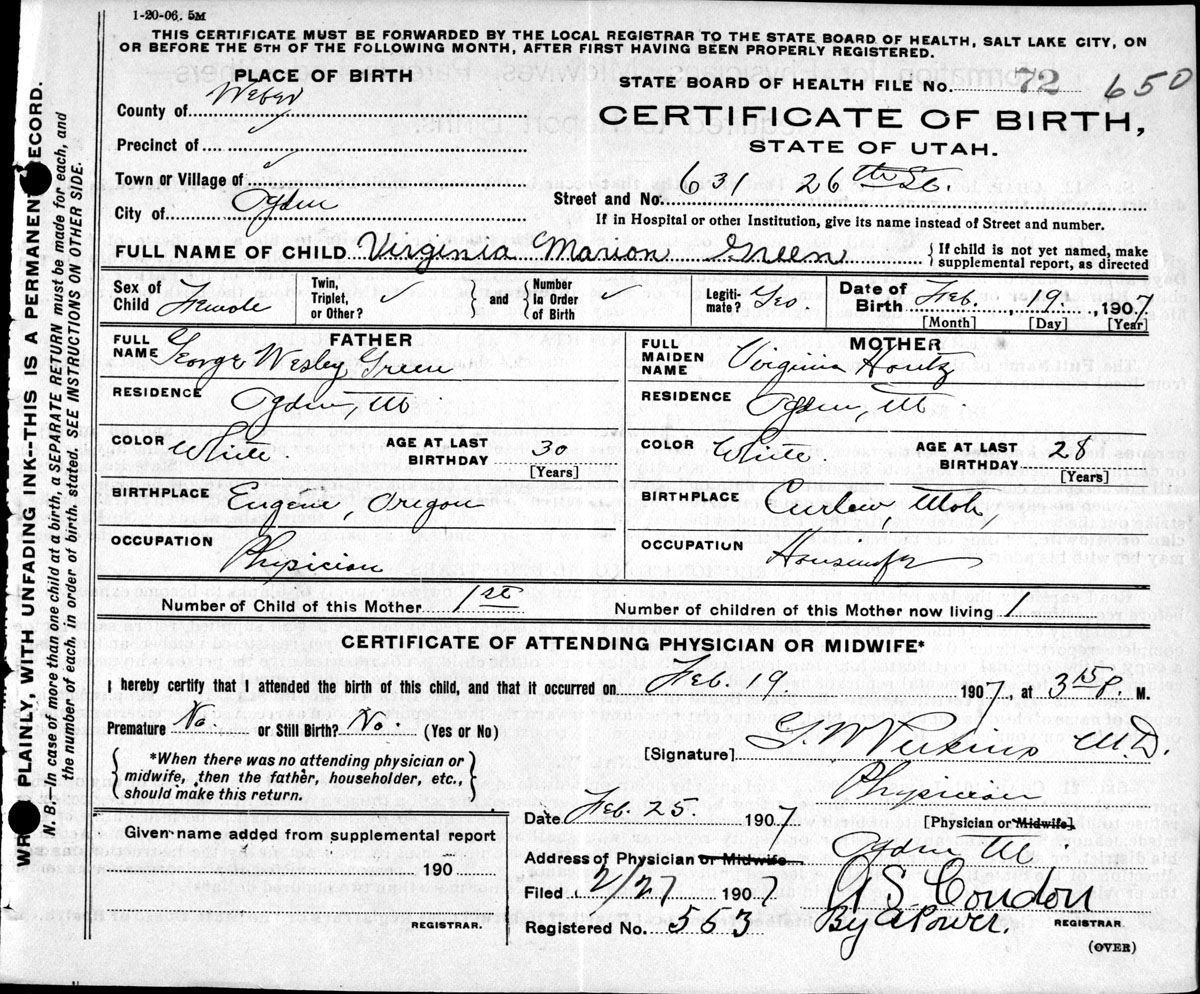 1-20-06. 5M
THIS CERTIFICATE MUST BE FORWARDED BY THE LOCAL REGISTRAR TO THE STATE BOARD OF HEALTH, SALT LAKE CITY, ON
OR BEFORE THE 5TH OF THE FOLLOWING MONTH, AFTER FIRST HAVING BEEN PROPERLY REGISTERED.
PLACE OF BIRTH
County of Weber
Precinct of ✓
Town or Village of ✓
City of Ogden
STATE BOARD OF HEALTH FILE No. 72 650
CERTIFICATE OF BIRTH,
STATE OF UTAH.
Street and No. 631 26th St.
If in Hospital or other Institution, give its name instead of Street and number.
FULL NAME OF CHILD Virginia Marion Green {If child is not yet named, make
supplemental report, as directed
Sex of Child Female
Twin, Triplet, or Other? ✓
and
Number in Order of Birth ✓
Legiti-mate? Yes
Date of Birth Feb. 19, 1907
[Month] [Day] [Year]
FATHER
FULL NAME George Wesley Green
RESIDENCE Ogden, Ut
COLOR White
AGE AT LAST BIRTHDAY 30
[Years]
BIRTHPLACE Eugene, Oregon
OCCUPATION Physician
MOTHER
FULL MAIDEN NAME Virginia Houtz
RESIDENCE Ogden, Ut
COLOR White
AGE AT LAST BIRTHDAY 28
[Years]
BIRTHPLACE
OCCUPATION Housewife
Number of Child of this Mother 1st
Number of children of this Mother now living 1
CERTIFICATE OF ATTENDING PHYSICIAN OR MIDWIFE*
I hereby certify that I attended the birth of this child, and that it occurred on Feb. 19 1907, at 3 15 P. M.
Premature No. or Still Birth? No. (Yes or No)
{*When there was no attending physician or
midwife, then the father, householder, etc.,
should make this return.}
Given name added from supplemental report
190
REGISTRAR.
[Signature] G. W. Perkins M.D.
Physician
[Physician or Midwife]
Date Feb. 25. 1907
Address of Physician or Midwife Ogden Ut
Filed 2/27 1907
A S. Condon
Registered No. 563
By A Power.
REGISTRAR
(OVER)
WRITE PLAINLY, WITH UNFADING INK--THIS IS A PERMANENT RECORD.
N. B.—In case of more than one child at a birth, a SEPARATE RETURN must be made for each, and
the number of each, in order of birth, stated. SEE INSTRUCTIONS ON OTHER SIDE.